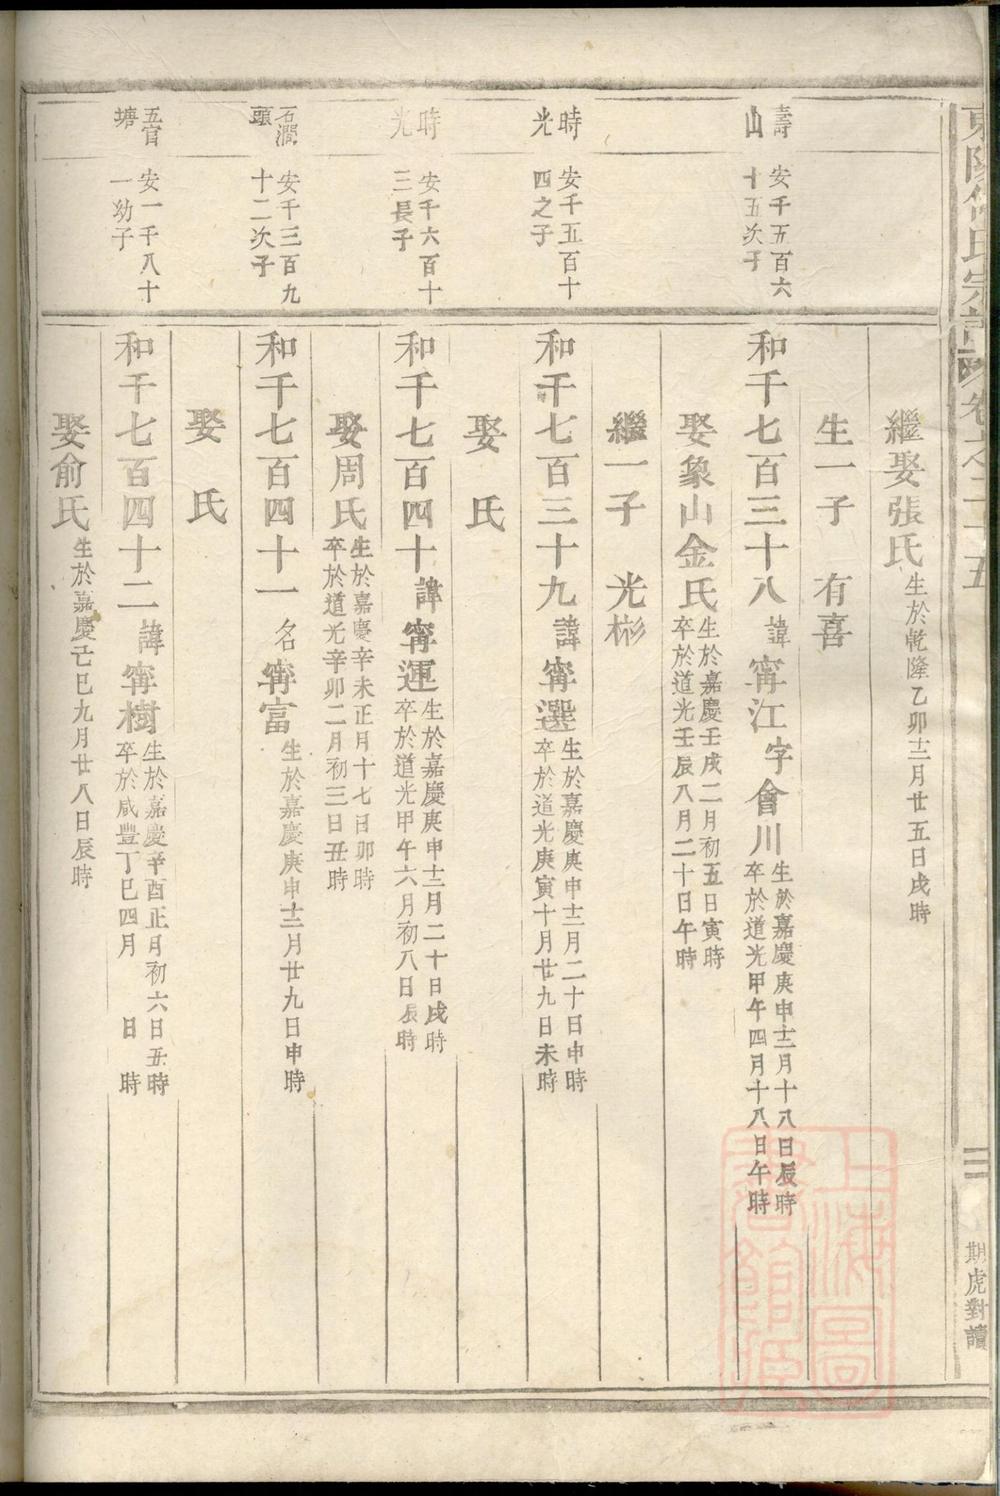 繼娶張氏生於乾隆乙卯十二月廿五日戌時
生一子 有喜
壽山
安千五百六十五次子
和千七百三十八諱甯江字會川生於嘉慶庚申十二月十八日辰時卒於道光甲午四月十八日午時
娶象山金氏生於嘉慶壬戌二月初五日寅時卒於道光壬辰八月二十日午時
繼一子 光彬
時光
安千五百十四之子
和千七百三十九諱甯選生於嘉慶庚申十二月二十日申時卒於道光庚寅十月廿九日未時
娶 氏
時光
安千六百十三長子
和千七百四十諱甯運生於嘉慶庚申十二月二十日戌時卒於道光甲午六月初八日辰時
娶周氏生於嘉慶辛未正月十七日卯時卒於道光辛卯二月初三日丑時
石澗頭
安千三百九十二次子
和千七百四十一名甯富生於嘉慶庚申十二月廿九日申時
娶 氏
五官塘
安一千八十一幼子
和千七百四十二諱甯樹生於嘉慶辛酉正月初六日丑時卒於咸豐丁巳四月 日 時
娶俞氏生於嘉慶己巳九月廿八日辰時
東陽何氏宗譜 卷之二十五
二
期虎對讀
上海圖書館藏